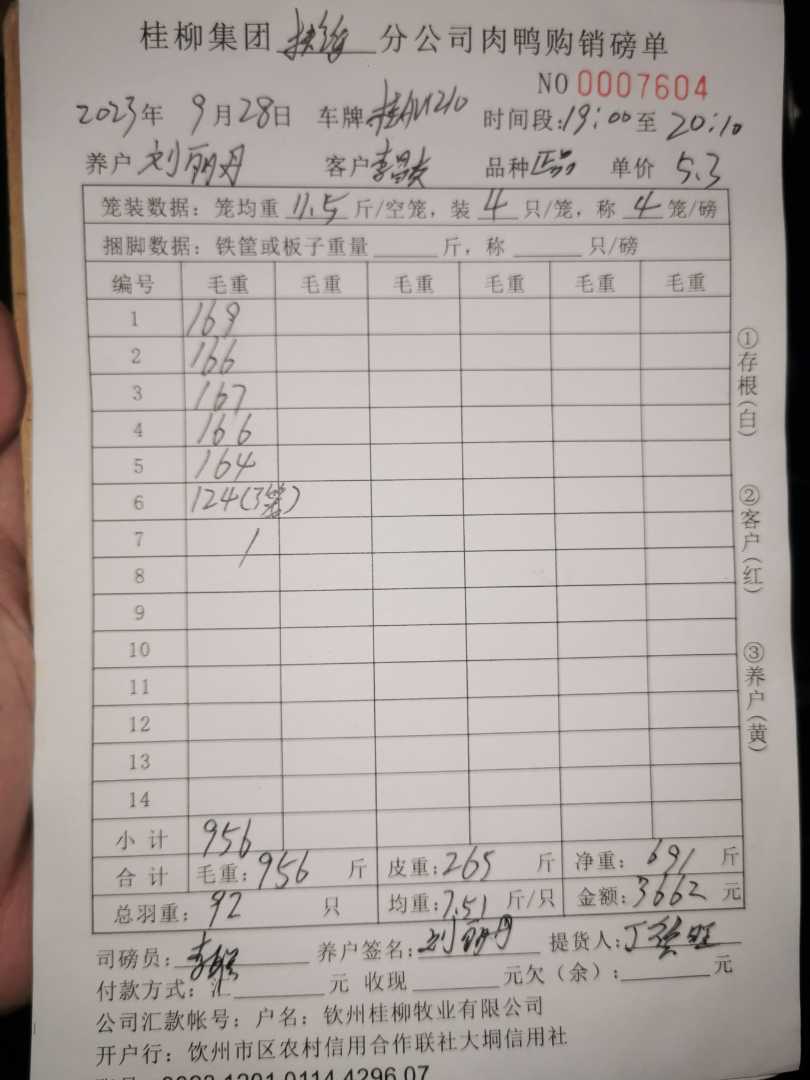 桂柳集团 扶绥 分公司肉鸭购销磅单
NO 0007604
2023年 9月28日 车牌 时间段:19:00至 20:10
养户 刘丽丹 客户 李昌 品种 正品 单价 5.3
笼装数据：笼均重 11.5 斤/空笼，装 4 只/笼，称 4 笼/磅
捆脚数据：铁筐或板子重量 斤，称 只/磅
编号 毛重 毛重 毛重 毛重 毛重 毛重
1 169
2 166
3 167
4 166
5 164
6 124(3笼)
7 /
8
9
10
11
12
13
14
小计 956
合计 毛重:956 斤 皮重:265 斤 净重: 691 斤
总羽重: 92 只 均重:7.51 斤/只 金额:3662 元
司磅员: 李 养户签名: 刘丽丹 提货人: 丁 旺
付款方式: 汇 元 收现 元欠（余）: 元
公司汇款帐号：户名：钦州桂柳牧业有限公司
开户行：饮州市区农村信用合作联社大垌信用社
①存根(白)
②客户(红)
③养户(黄)